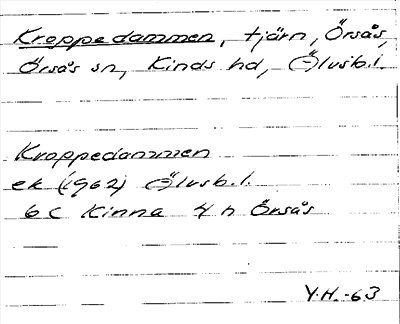 Kroppedammen, tjärn, Örsås,
Örsås sn, Kinds hd, Älvsb.l.
Kroppedammen
ek (1962) Älvsb.l.
6C Kinna 4h Örsås
Y.H.-63